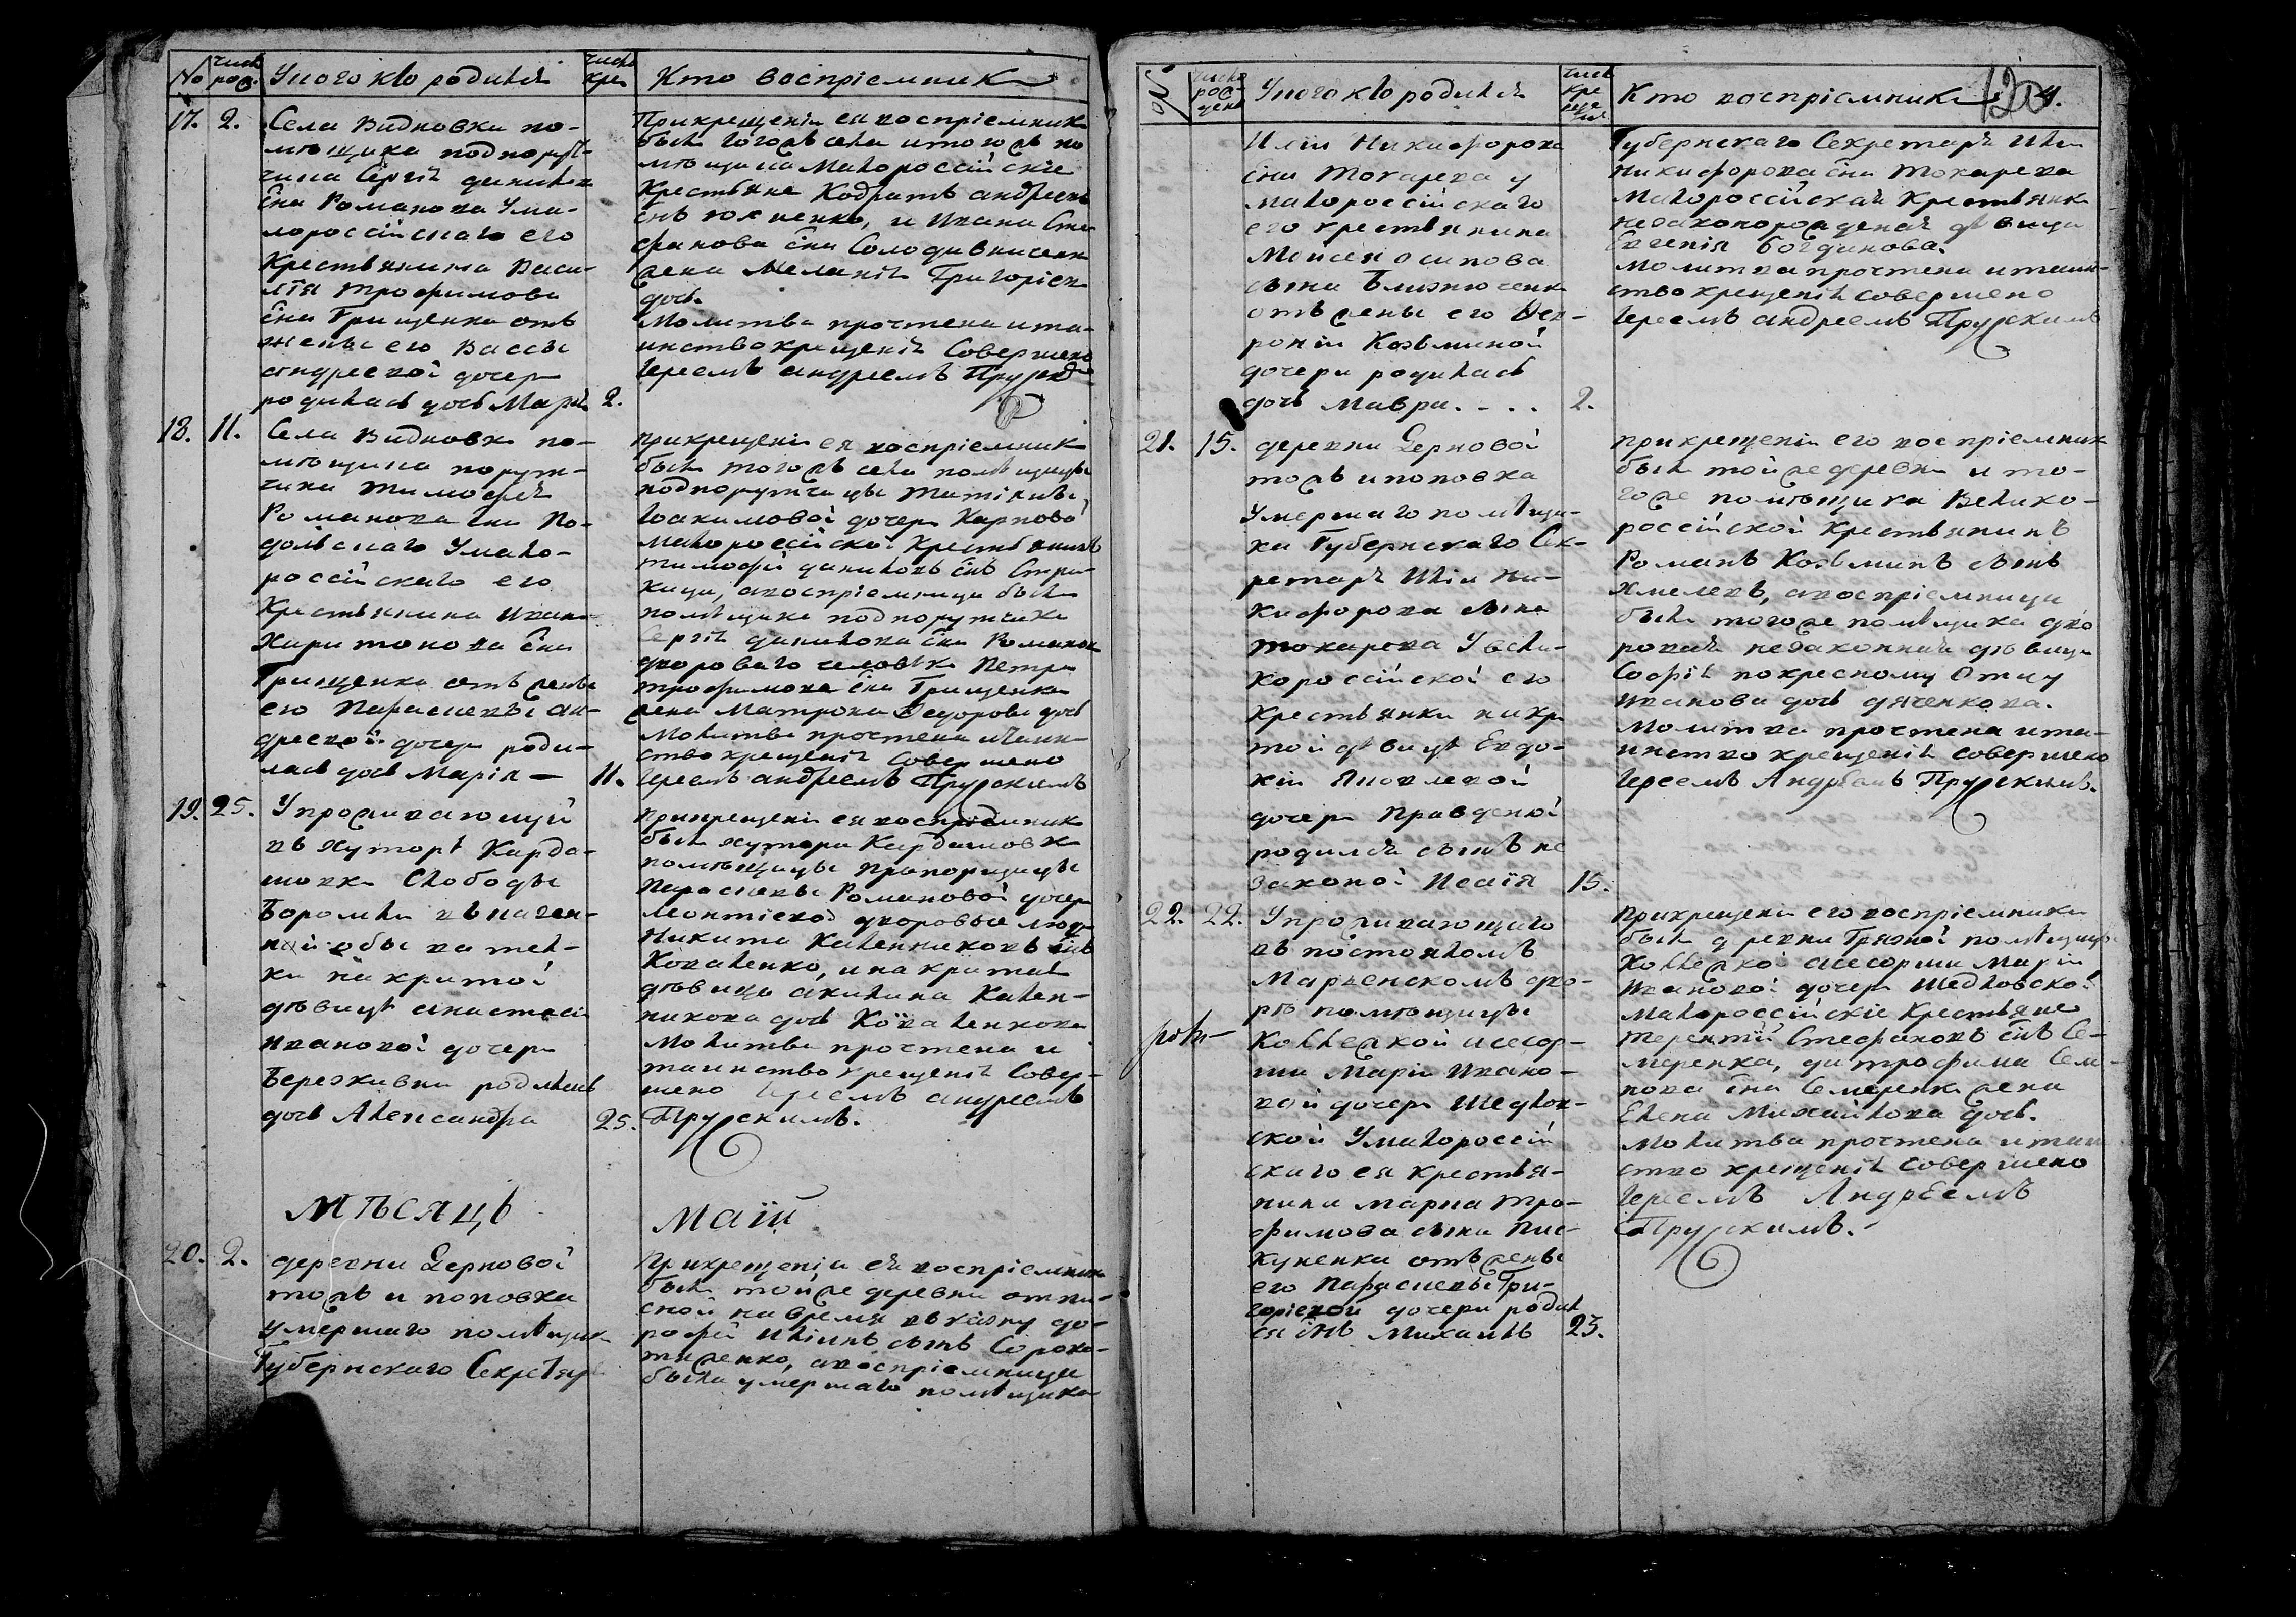 No число род. Уного кто родился число кре Кто воспріемник
17. 2. Села Видновки по-
мѣщика подпорут-
чика Сергія данилов
сна Романова Ума-
лороссійскаго его
Крестьянина Васи-
лія трофимова
сна Грищенка отъ
жены его Вассы
андреевой дочери
родилась дочь Марія 2.
Прикрещеніи ея воспріемник
были тогожъ села итогожъ по
мѣщика Малороссійскіе
Крестьяне Кодратъ андреевъ
снъ и Ивана Сте
фанова сна
жена Меланія Григоріева
дочь.
Молитва прочтена ита-
инство крещенія Совершено
Іереемъ андреемъ
18. 11. Села Видновки по-
мѣщика порут-
чика тимофея
Романова сна По-
дольскаго Умало-
россійскаго его
Крестьянина Ивана
Харитонова сна
Грищенка отъ жены
его Параскевы ан-
дреевой дочери роди-
лась дочь Марія — 11.
прикрещеніи ея воспріемник
были тогожъ села помѣщицы
подпорутчицы татіяны
Іоакимовой дочери Карповой
малороссійской Крестьянинъ
тимофей даниловъ снъ
авоспріемница была
помѣщика подпорутчика
Сергія данилова сна Романова
двороваго человѣка Петра
трофимова сна Грищенка
жена Матрона Федорова дочь
Молитва прочтена итаин-
ство крещенія Совершено
Іереемъ андреемъ
19. 25. Упроживающей
въ хуторѣ Карда-
шовки Слободы
Боромли
ной обыватель-
ки накритой
дѣвицы анастасіи
Ивановой дочери
Бережнивни родилась
дочь Александра 25.
прикрещеніи ея воспріемник
были хутора Кардашовки
помѣщицы прапорщицы
Параскевы Романовой дочери
дворовые люди
Никита Каленниковъ снъ
Коваленко, и накритая
дѣвица акилина Кален-
никова дочь Коваленкова
Молитва прочтена и
таинство крещенія Совер-
шено Іереемъ андреемъ
МѢСЯЦЪ Маій
20. 2. деревни Дерновой
тожъ и поповка
умершаго помѣщика
Губернскаго Секретаря
Прикрещеніи ея воспріемник
былъ тойже деревни отпи-
сной навремя вказну до-
рофей Иліинъ сынъ
авоспріемница
была умершаго помѣщика
№ число рож-дения Уного кто родился число кре ще нія Кто воспріемники 120 4.
Иліи Никифорова
сна Токарева у
малороссійскаго
его крестьянина
Моисея осипова
сына Близнюченка
отъ жены его Фев-
роніи Козьминой
дочери родилась
дочь Мавра. - . . 2.
Губернскаго Секретаря Иліи
Никифорова сна Токарева
Малороссійская Крестьянка
незаконорожденая дѣвица
Евгенія Богданова.
Молитва прочтена итаин-
ство крещенія совершено
Іереемъ андреемъ
21. 15. деревни Дерновой
тожъ ипоповка
Умершаго помѣщи-
ка Губернскаго Сек-
ретаря Иліи Ни-
кифорова сына
токарева Увели-
короссійской его
Крестьянки накри
той дѣвицы Евдо-
кіи Яковлевой
дочери Правденой
родился сынъ не
законой Исаія 15.
прикрещеніи его воспріемник
былъ тойже деревни и то-
гоже помѣщика Велико-
россійской Крестьянинъ
Романъ Козьминъ сынъ
Хмелевъ, авоспріемница
была тогоже помѣщика дво
ровая незаконная дѣвица
Софія покресному Отцу
Иванова дочь дяченкова.
Молитва прочтена ита-
инство крещенія совершено
Іереемъ Андреемъ
22. 22. Упроживающаго
въ постояломъ
Марченскомъ дво-
рѣ помѣщицы
Коллежской асесор-
ши Маріи Ивано-
вой дочери Шедлов-
ской Умалороссій
скаго ея крестья-
нина марка тро-
фимова сына Пис-
куненка отъ жены
его Параскевы Гри-
горіевой дочери родил
ся снъ Михаилъ 23.
прикрещеніи его воспріемники
были деревни Грязной помѣщицы
Коллежской асесорши Маріи
Ивановой дочери Шедловской
малороссійскіе Крестьяне
терентій Стефановъ снъ Се-
меренка, да трофима Сем-
нова сна Семеренка жена
Елена Михайлова дочь.
Молитва прочтена итаин
ство крещенія совершено
Іереемъ Андреемъ